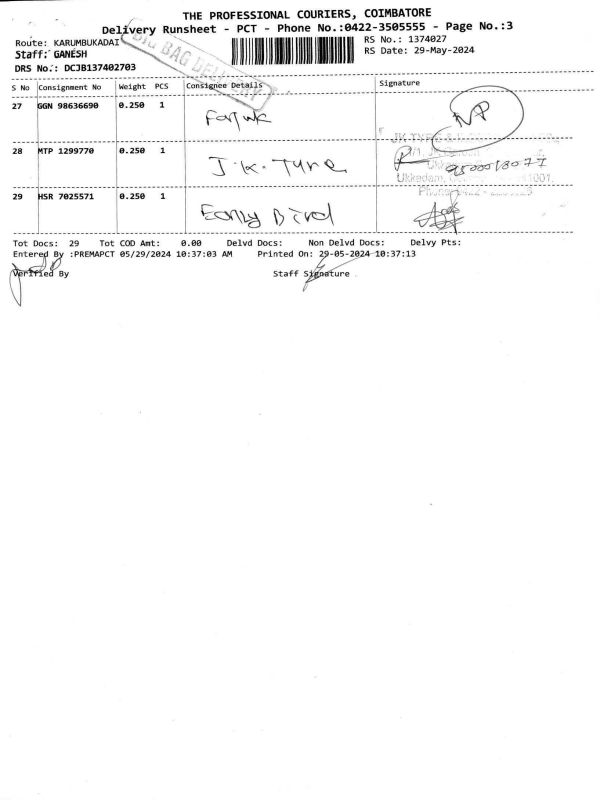 THE PROFESSIONAL COURIERS, COIMBATORE
Delivery Runsheet - PCT - Phone No.:0422-3505555 - Page No.:3
Route: KARUMBUKADAI
RS No.: 1374027
Staff: GANESH
RS Date: 29-May-2024
DRS No.: DCJB137402703
BIG BAG DELIVERY
S No Consignment No Weight PCS Consignee Details Signature
27 GGN 98636690 0.250 1 NP
28 MTP 1299770 0.250 1 J.K. Tyre
Ukkadam,
29 HSR 7025571 0.250 1 Early Bird
Tot Docs: 29 Tot COD Amt: 0.00 Delvd Docs: Non Delvd Docs: Delvy Pts:
Entered By :PREMAPCT 05/29/2024 10:37:03 AM Printed On: 29-05-2024 10:37:13
Verified By Staff Signature